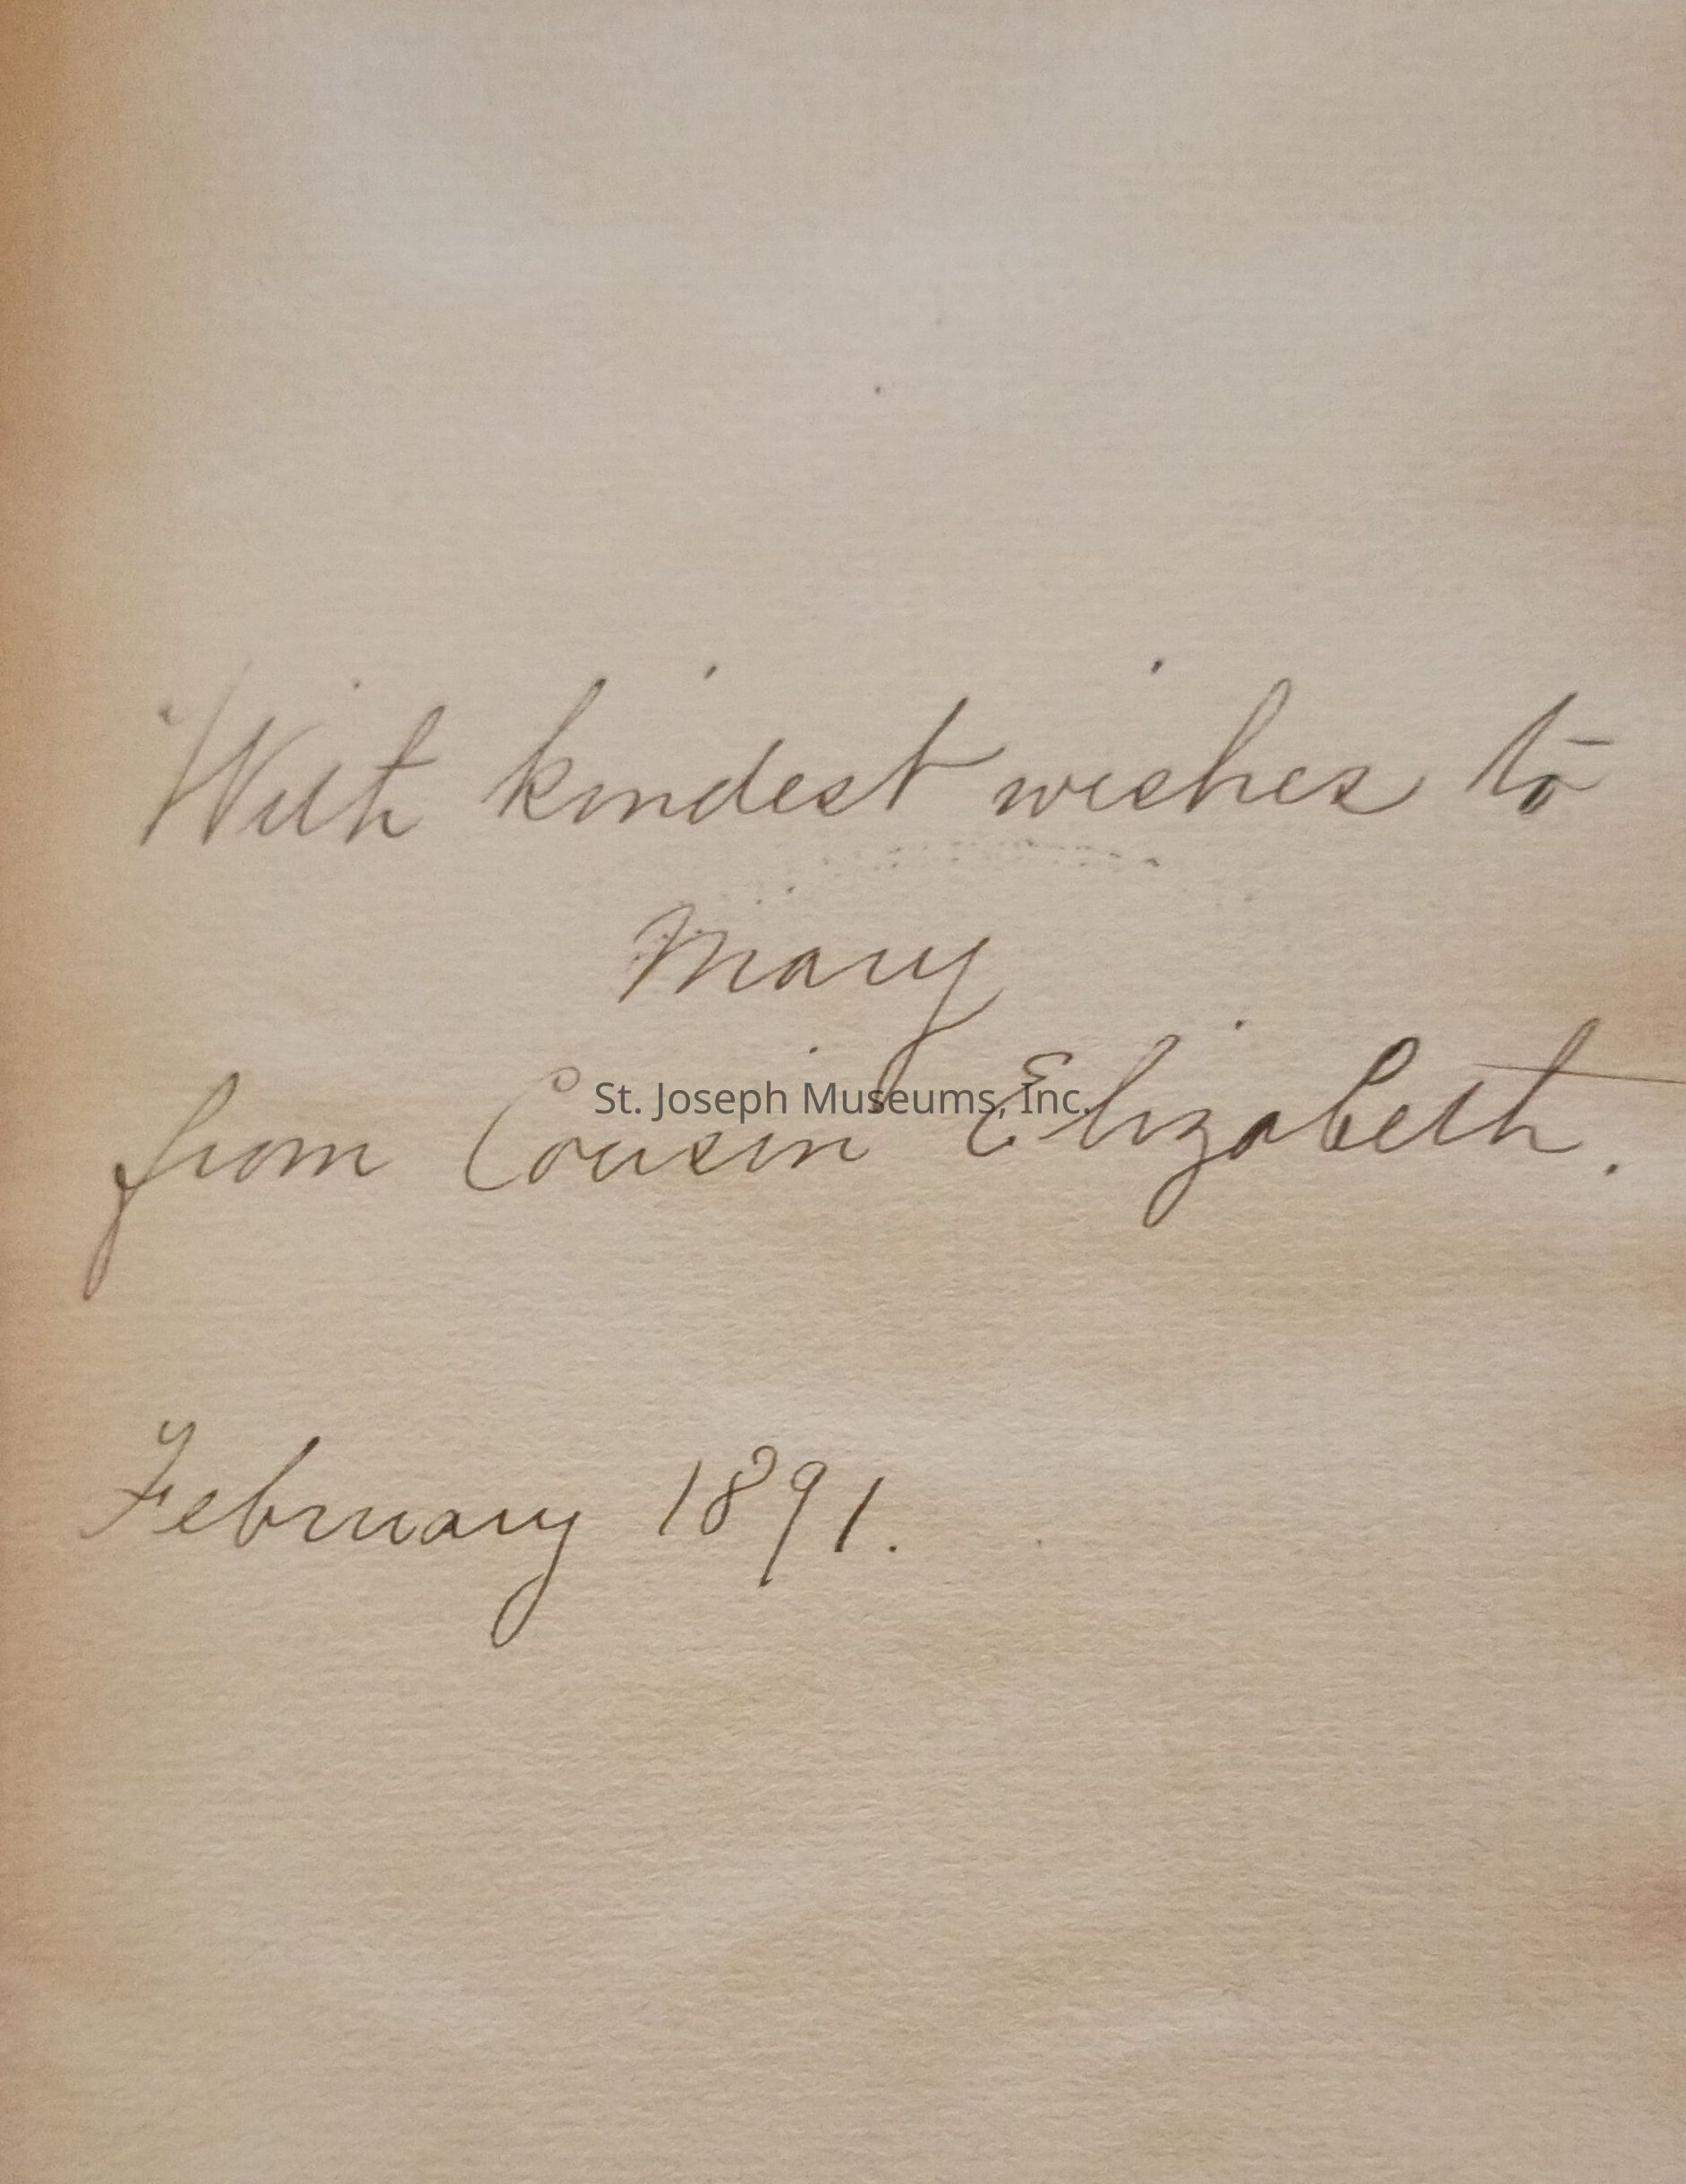 With kindest wishes to
Mary
from Cousin Elizabeth.
St. Joseph Museums, Inc.
February 1891.